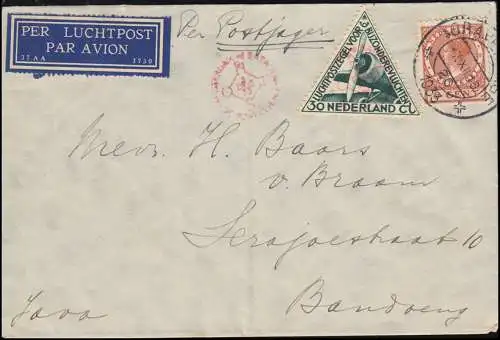 PER LUCHTPOST
PAR AVION
Per Postjager
LUCHTPOSTZEGEL VOOR
BIJZONDERE VLUCHTEN
30 NEDERLAND CT
Mevr. H. Baars
v. Braam
Serajoestraat 10
Bandoeng
Java